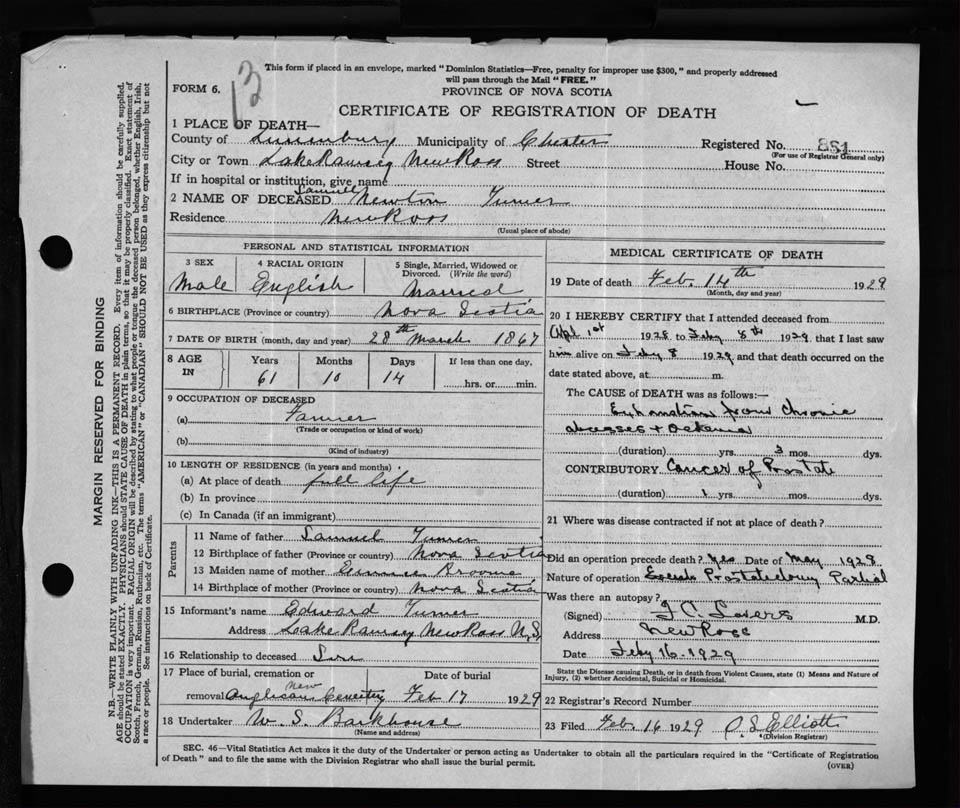 This form if placed in an envelope, marked "Dominion Statistics—Free, penalty for improper use $300," and properly addressed
will pass through the Mail "FREE."
FORM 6.
13
PROVINCE OF NOVA SCOTIA
CERTIFICATE OF REGISTRATION OF DEATH
1 PLACE OF DEATH—
County of Lunenburg Municipality of Chester Registered No. 851
(For use of Registrar General only)
City or Town Lake Ramsey New Ross Street House No.
If in hospital or institution, give name
2 NAME OF DECEASED Samuel Newton Turner
Residence New Ross
(Usual place of abode)
PERSONAL AND STATISTICAL INFORMATION
3 SEX 4 RACIAL ORIGIN 5 Single, Married, Widowed or
Divorced. (Write the word)
Male English Married
6 BIRTHPLACE (Province or country) Nova Scotia
7 DATE OF BIRTH (month, day and year) 28th March 1867
8 AGE IN Years Months Days If less than one day,
61 10 14 hrs. or min.
9 OCCUPATION OF DECEASED
(a) Farmer
(Trade or occupation or kind of work)
(b)
(Kind of industry)
10 LENGTH OF RESIDENCE (in years and months)
(a) At place of death full life
(b) In province
(c) In Canada (if an immigrant)
Parents
11 Name of father Samuel Turner
12 Birthplace of father (Province or country) Nova Scotia
13 Maiden name of mother
14 Birthplace of mother (Province or country) Nova Scotia
15 Informant's name Edward Turner
Address Lake Ramsey New Ross N.S.
16 Relationship to deceased Son
17 Place of burial, cremation or Date of burial
removal Anglican New Cemetery Feb 17 1929
18 Undertaker W. S. Barkhouse
(Name and address)
MEDICAL CERTIFICATE OF DEATH
19 Date of death Feb. 14th 1929
(Month, day and year)
20 I HEREBY CERTIFY that I attended deceased from
Apl. 1st 1928 to Feby 8th 1929, that I last saw
him alive on Feby 8 1929, and that death occurred on the
date stated above, at m.
The CAUSE OF DEATH was as follows:—
Exhaustion from chronic
abscesses +
(duration) yrs. 3 mos. dys.
CONTRIBUTORY Cancer of Prostate
(duration) 1 yrs. mos. dys.
21 Where was disease contracted if not at place of death?
Did an operation precede death? Yes Date of May 1928
Nature of operation Partial
Was there an autopsy?
(Signed) M.D.
Address New Ross
Date Feby 16-1929
State the Disease causing Death, or in death from Violent Causes, state (1) Means and Nature of
Injury, (2) whether Accidental, Suicidal or Homicidal.
22 Registrar's Record Number
23 Filed Feb. 16 1929 Elliott
(Division Registrar)
SEC. 46—Vital Statistics Act makes it the duty of the Undertaker or person acting as Undertaker to obtain all the particulars required in the "Certificate of Registration
of Death" and to file the same with the Division Registrar who shall issue the burial permit.
(OVER)
MARGIN RESERVED FOR BINDING
N.B.—WRITE PLAINLY WITH UNFADING INK—THIS IS A PERMANENT RECORD. Every item of information should be carefully supplied.
AGE should be stated EXACTLY. PHYSICIANS should STATE CAUSE OF DEATH in plain terms, so that it may be properly classified. Exact statement of
OCCUPATION is very important. RACIAL ORIGIN will be described by stating to what people or tongue the deceased person belonged, whether English, Irish,
Scotch, French, German, Russian, Ruthenian, etc. The terms "AMERICAN" or "CANADIAN" SHOULD NOT BE USED as they express citizenship but not
a race or people. See instructions on back of Certificate.